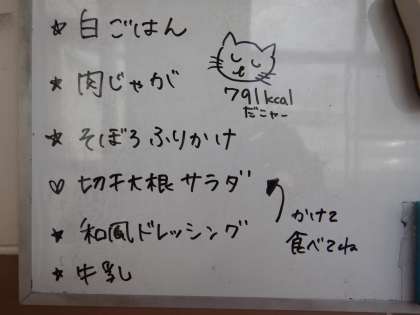 ☆ 白ごはん
★ 肉じゃが
791kcal
だニャー
★ そぼろふりかけ
♡ 切干大根サラダ
★ 和風ドレッシング
かけて
食べてね
★ 牛乳